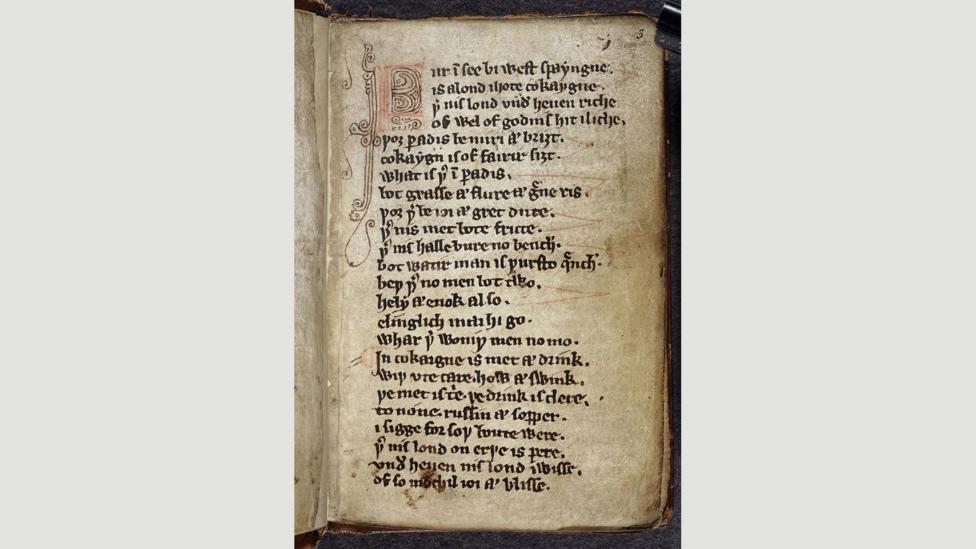 3
Fur ī see bi west spayngne.
is a lond ihote cokaygne.
þ̉ nis lond vnd̉ heuen riche
of wel of godnis hit iliche.
þoȝ ꝑadis be miri ⁊ briȝt.
cokaygn is of fairir siȝt.
what is þ̉ ī ꝑadis.
bot grasse ⁊ flure ⁊ g̉ne ris.
þoȝ þ̉ be ioi ⁊ gret dute.
þ̉ nis met bote frute.
þ̉ nis halle bure no bench.
bot watir man is þursto q̉nch.
beþ þ̉ no men bot two.
hely ⁊ enok also.
elinglich mai hi go.
whar þ̉ woniþ men no mo.
In cokaigne is met ⁊ drink.
wiþ vte care. how ⁊ swink.
þe met is t̉e. þe drink is clere.
to none. russin ⁊ sopper.
i sigge for soþ boute were.
þ̉ nis lond on erþe is pere.
vnd̉ heuen nis lond iwisse.
of so mochil ioi ⁊ blisse.